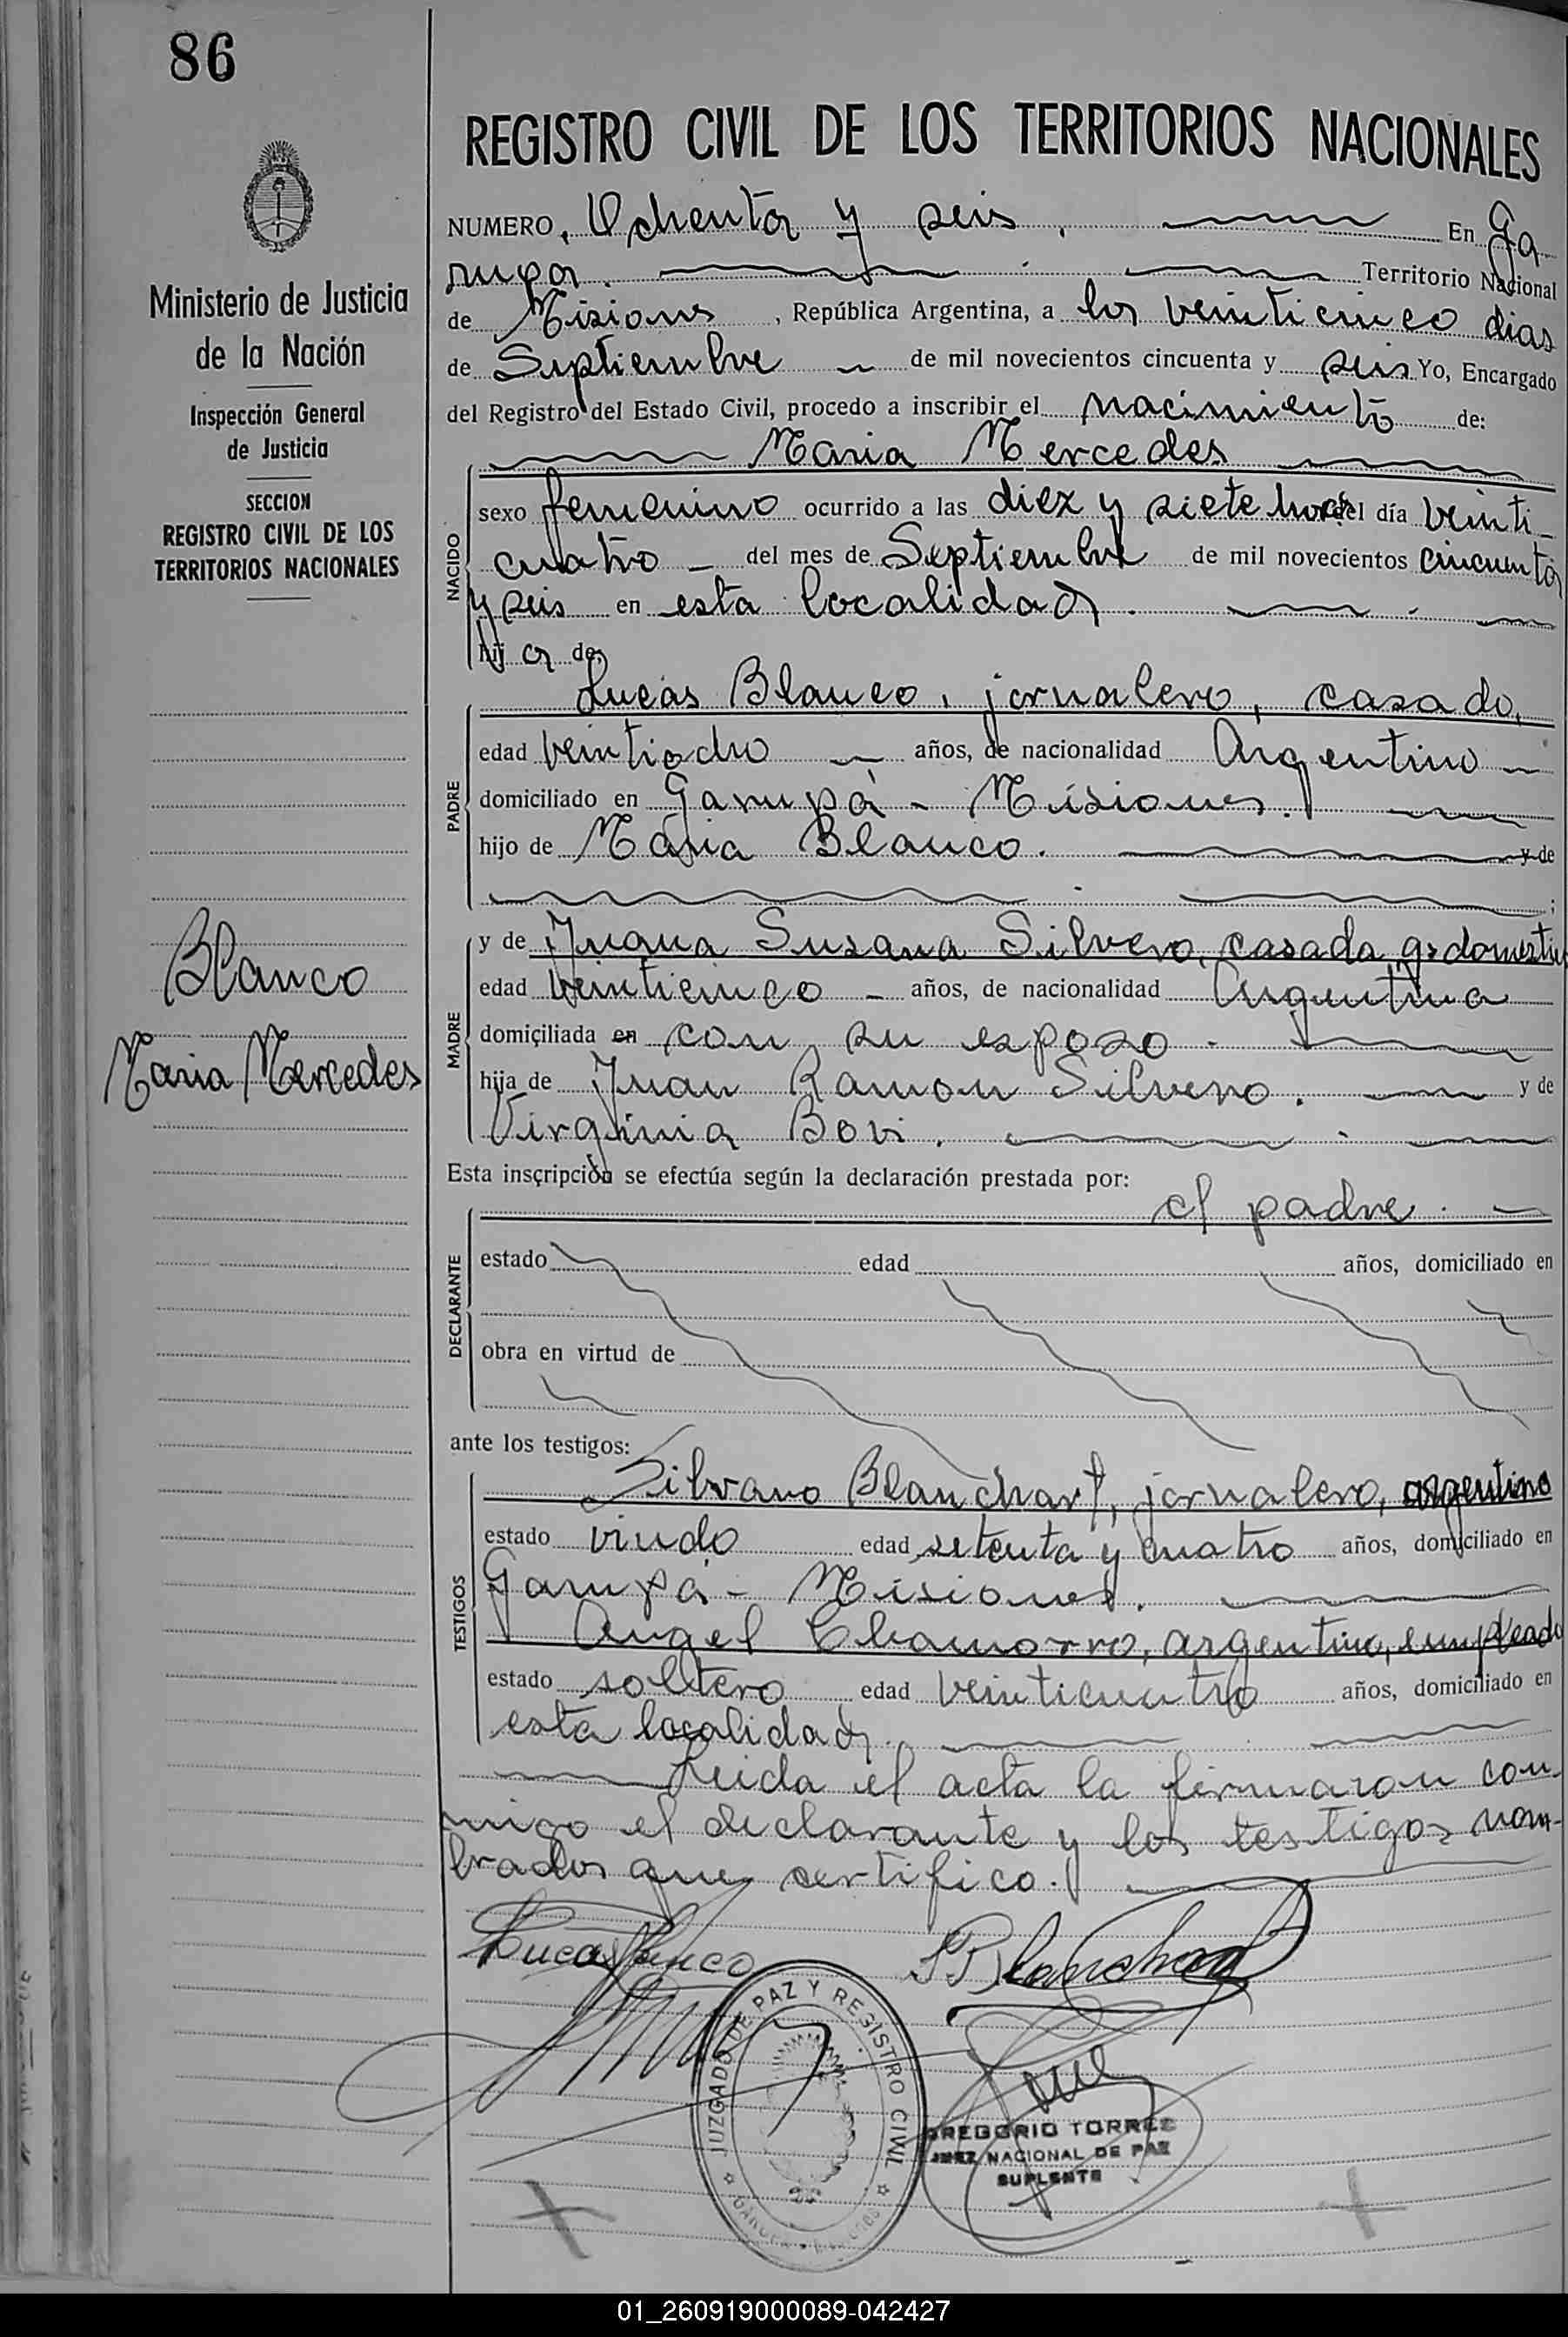 86
Ministerio de Justicia
de la Nación
Inspección General
de Justicia
SECCION
REGISTRO CIVIL DE LOS
TERRITORIOS NACIONALES
Blanco
Maria Mercedes
REGISTRO CIVIL DE LOS TERRITORIOS NACIONALES
NUMERO, Ochenta y seis. En Ga
rupa. Territorio Nacional
de Misiones, República Argentina, a los veinticinco dias
de Septiembre de mil novecientos cincuenta y seis Yo, Encargado
del Registro del Estado Civil, procedo a inscribir el nacimiento de:
Maria Mercedes
NACIDO
sexo femenino ocurrido a las diez y siete horas del día veinti
cuatro del mes de Septiembre de mil novecientos cincuenta
y seis en esta localidad.
hij a de:
Lucas Blanco, jornalero, casado,
PADRE
edad veintiocho años, de nacionalidad Argentino
domiciliado en Garupá - Misiones.
hijo de Maria Blanco. y de
MADRE
y de Juana Susana Silvero, casada, qs domestic
edad veinticinco años, de nacionalidad Argentina
domiciliada en con su esposo.
hija de Juan Ramon Silvero. y de
Virginia Bovi.
Esta inscripción se efectúa según la declaración prestada por:
el padre.
DECLARANTE
estado edad años, domiciliado en
obra en virtud de
ante los testigos:
Silvano Blanchart, jornalero, argentino
TESTIGOS
estado viudo edad setenta y cuatro años, domiciliado en
Garupá - Misiones.
Angel Chamorro, argentino, empleado
estado soltero edad veinticuatro años, domiciliado en
esta localidad.
Leida el acta la firmaron con-
migo el declarante y los testigos nom-
brados que certifico.
Lucas Blanco
S Blanchart
JUZGADO DE PAZ Y REGISTRO CIVIL
GREGORIO TORRES
JUEZ NACIONAL DE PAZ
SUPLENTE
01_260919000089-042427